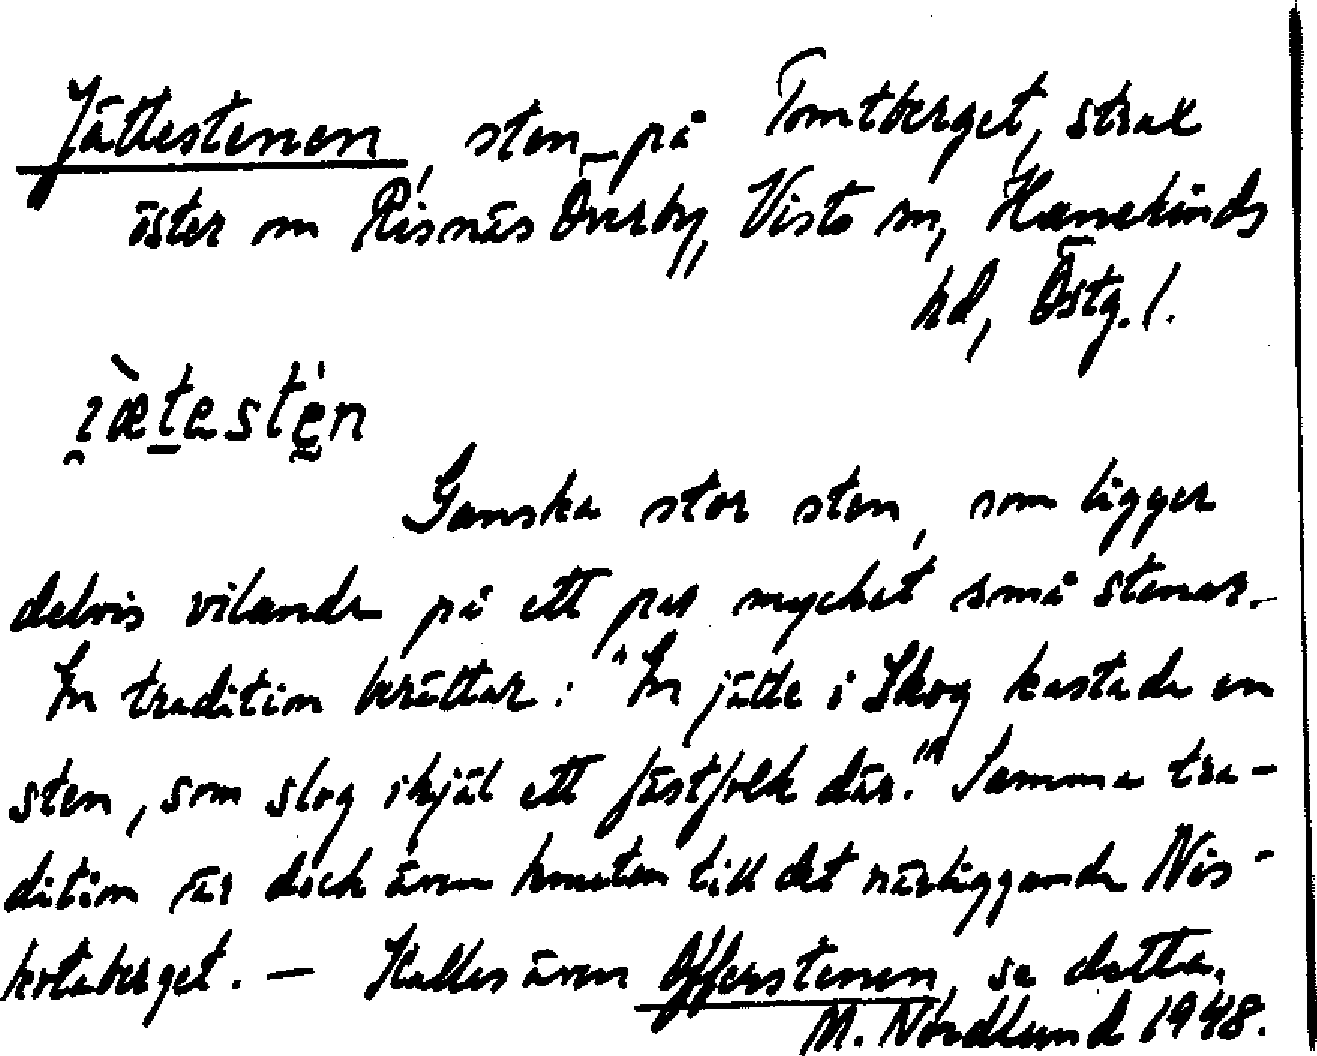 Jättestenen, sten på Tomtberget, strax
öster om Risnäs Överby, Visto sn, Hanekinds
hd, Östg. l.
i̯æ̀testen
Ganska stor sten, som ligger
delvis vilande på ett par mycket små stenar.
En tradition berättar: "En jätte i Skog kastade en
sten, som slog ihjäl ett fästfolk där." Samma tra-
dition är dock även knuten till det närliggande Nis-
kotaberget. — Kallas även Offerstenen, se detta.
M. Nordlund 1948.